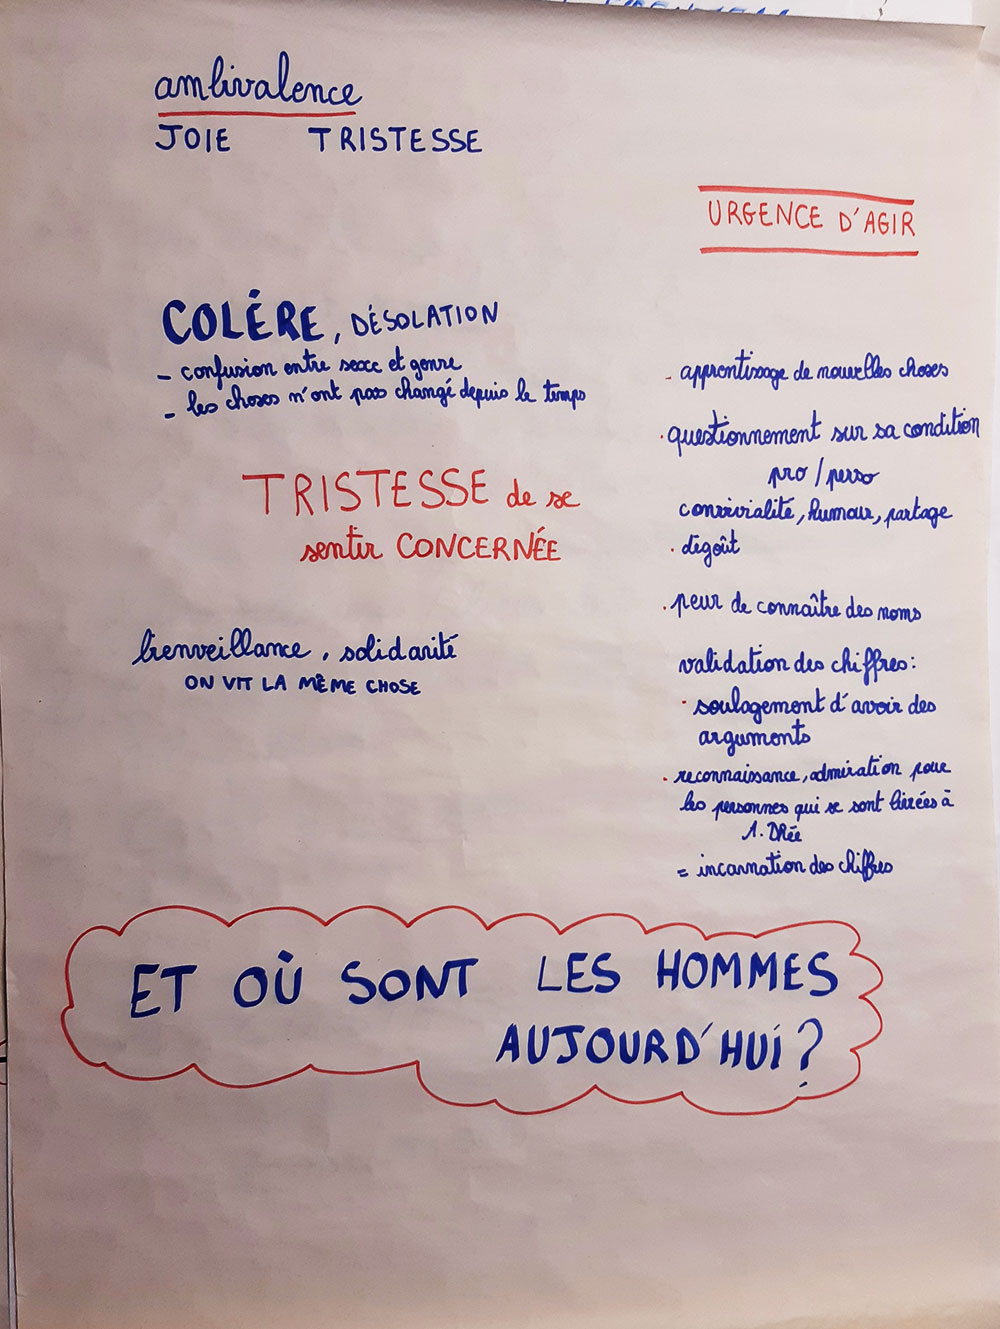 ambivalence
JOIE TRISTESSE
URGENCE D'AGIR
COLÈRE, DÉSOLATION
- confusion entre sexe et genre
- les choses n'ont pas changé depuis le temps
TRISTESSE de se
sentir CONCERNÉE
bienveillance, solidarité
ON VIT LA MÊME CHOSE
- apprentissage de nouvelles choses
· questionnement sur sa condition
pro / perso
convivialité, humour, partage
· dégoût
· peur de connaître des noms
validation des chiffres:
· soulagement d'avoir des
arguments
· reconnaissance, admiration pour
les personnes qui se sont livrées à
A. DRée
= incarnation des chiffres
ET OÙ SONT LES HOMMES
AUJOURD'HUI ?